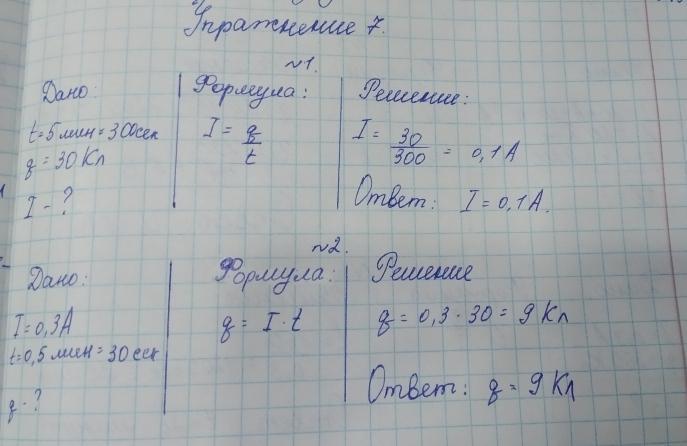 Упражнение 7.
№1.
Дано:
t=5 мин = 300 сек
q = 30 Кл
I - ?
Формула:
I = q/t
Решение:
I = 30/300 = 0,1 А
Ответ: I = 0,1 А.
№2.
Дано:
I = 0,3А
t=0,5 мин = 30 сек
q - ?
Формула:
q = I · t
Решение
q = 0,3 · 30 = 9 Кл
Ответ: q = 9 Кл